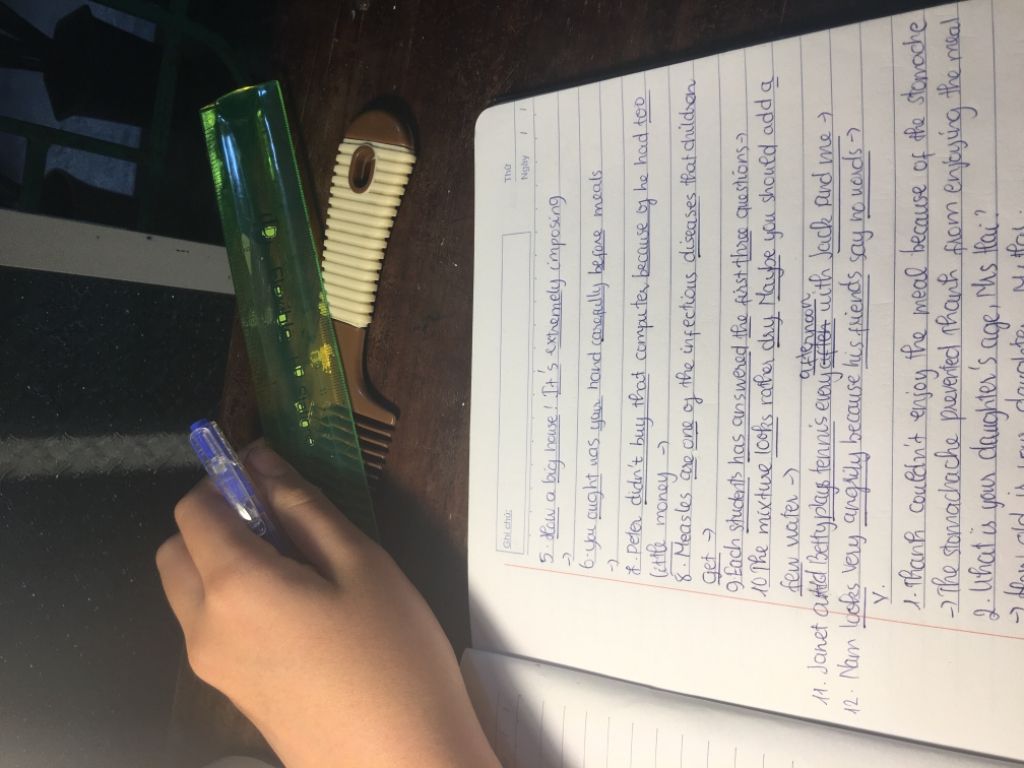 Ghi chú:
Thứ
Ngày
5. How a big house! It's extremely imposing
->
6. you ought was your hand carefully before meals
->
7. Peter didn't buy that computer because of he had too
little money ->
8. Measles are one of the infectious diseases that children
get ->
9. Each students has answered the first three questions ->
10 The mixture looks rather dry Maybe you should add a
few water ->
afternoon
11. Janet and betty plays tennis every after with Jack and me ->
12. Nam looks very angrily because his friends say no words ->
V.
1. Thanh couldn't enjoy the meal because of the stomache
-> The stomachache prevented Thanh from enjoying the meal
2. What is your daughter's age, Ms Hai?
-> How old is your daughter, Ms Hai